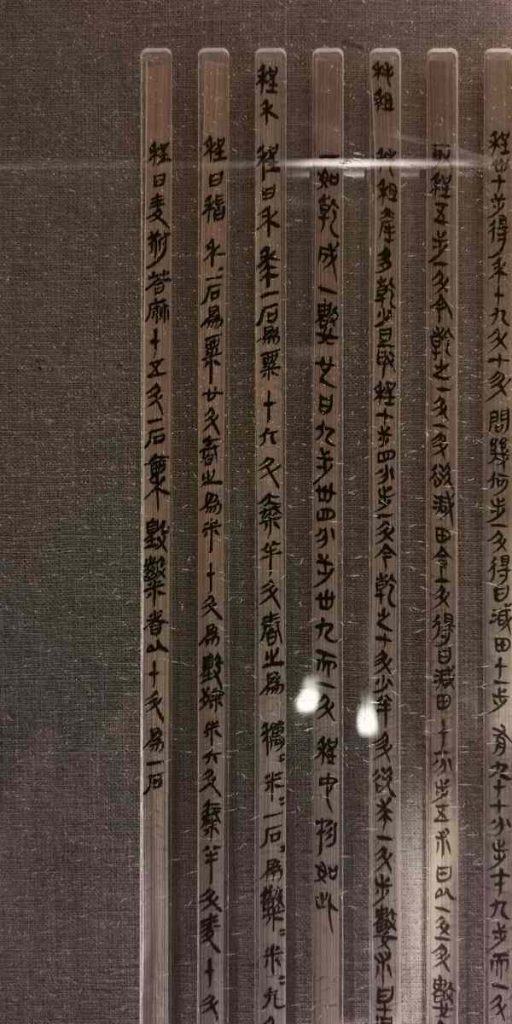 程卅七步得禾十九斗七升問幾何步一斗得曰減田十一步有九十七分步七十九步而一斗
取程五步一斗今乾之一斗一升欲減田令一斗得曰減田十一分步五术曰以一斗數
秏租
秏租產多乾少曰取程七步四分步一斗今乾之七升少半升欲求一斗步數术曰
如乾成一數也曰九步卌四分步卅九而一斗程它物如此
程禾
程曰禾黍一石為粟十六斗泰半斗舂之為糲=米=一石=為糳=米=九
程曰稻禾一石為粟廿斗舂之為米十斗為毀粲米六斗泰半斗麥十斗
程曰麥菽荅麻十五斗一石稟毀糳者以十斗為一石